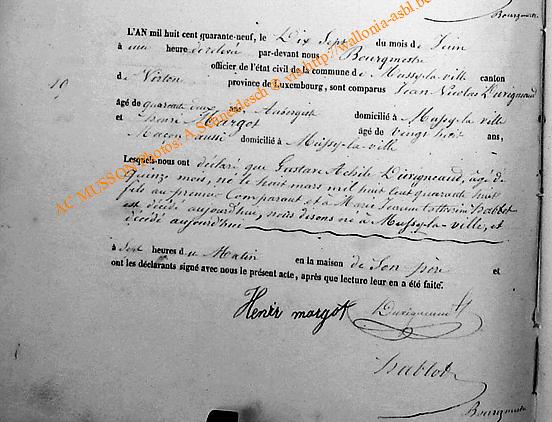 Bourgmestre
L'AN mil huit cent quarante-neuf, le Dix Sept du mois de Juin
à une heure de relevé par-devant nous Bourgmestre
officier de l'état civil de la commune de Mussy-la-ville canton
10
de Virton province de Luxembourg, sont comparus Jean Nicolas Duvigneaud
âgé de quarante deux ans, domicilié à Mussy-la ville
et Henri Margot âgé de vingt huit ans,
Maçon aussi domicilié à Mussy-la-ville
Lesquels nous ont déclaré que Gustave Achile Duvigneaud, âgé de
quinze mois, né le huit mars mil huit cent quarante huit
fils au premier Comparant et à Marie Jeanne Catherine
est décédé aujourd'hui, nous disons né à Mussy-la-ville, et
décédé aujourd'hui
à sept heures du Matin en la maison de Son père et
ont les déclarants signé avec nous le présent acte, après que lecture leur en a été faite.
Henri margot Duvigneaud
Bourgmestre
AC MUSSON Photos. A Schneidesch © via http://wallonia-asbl.be